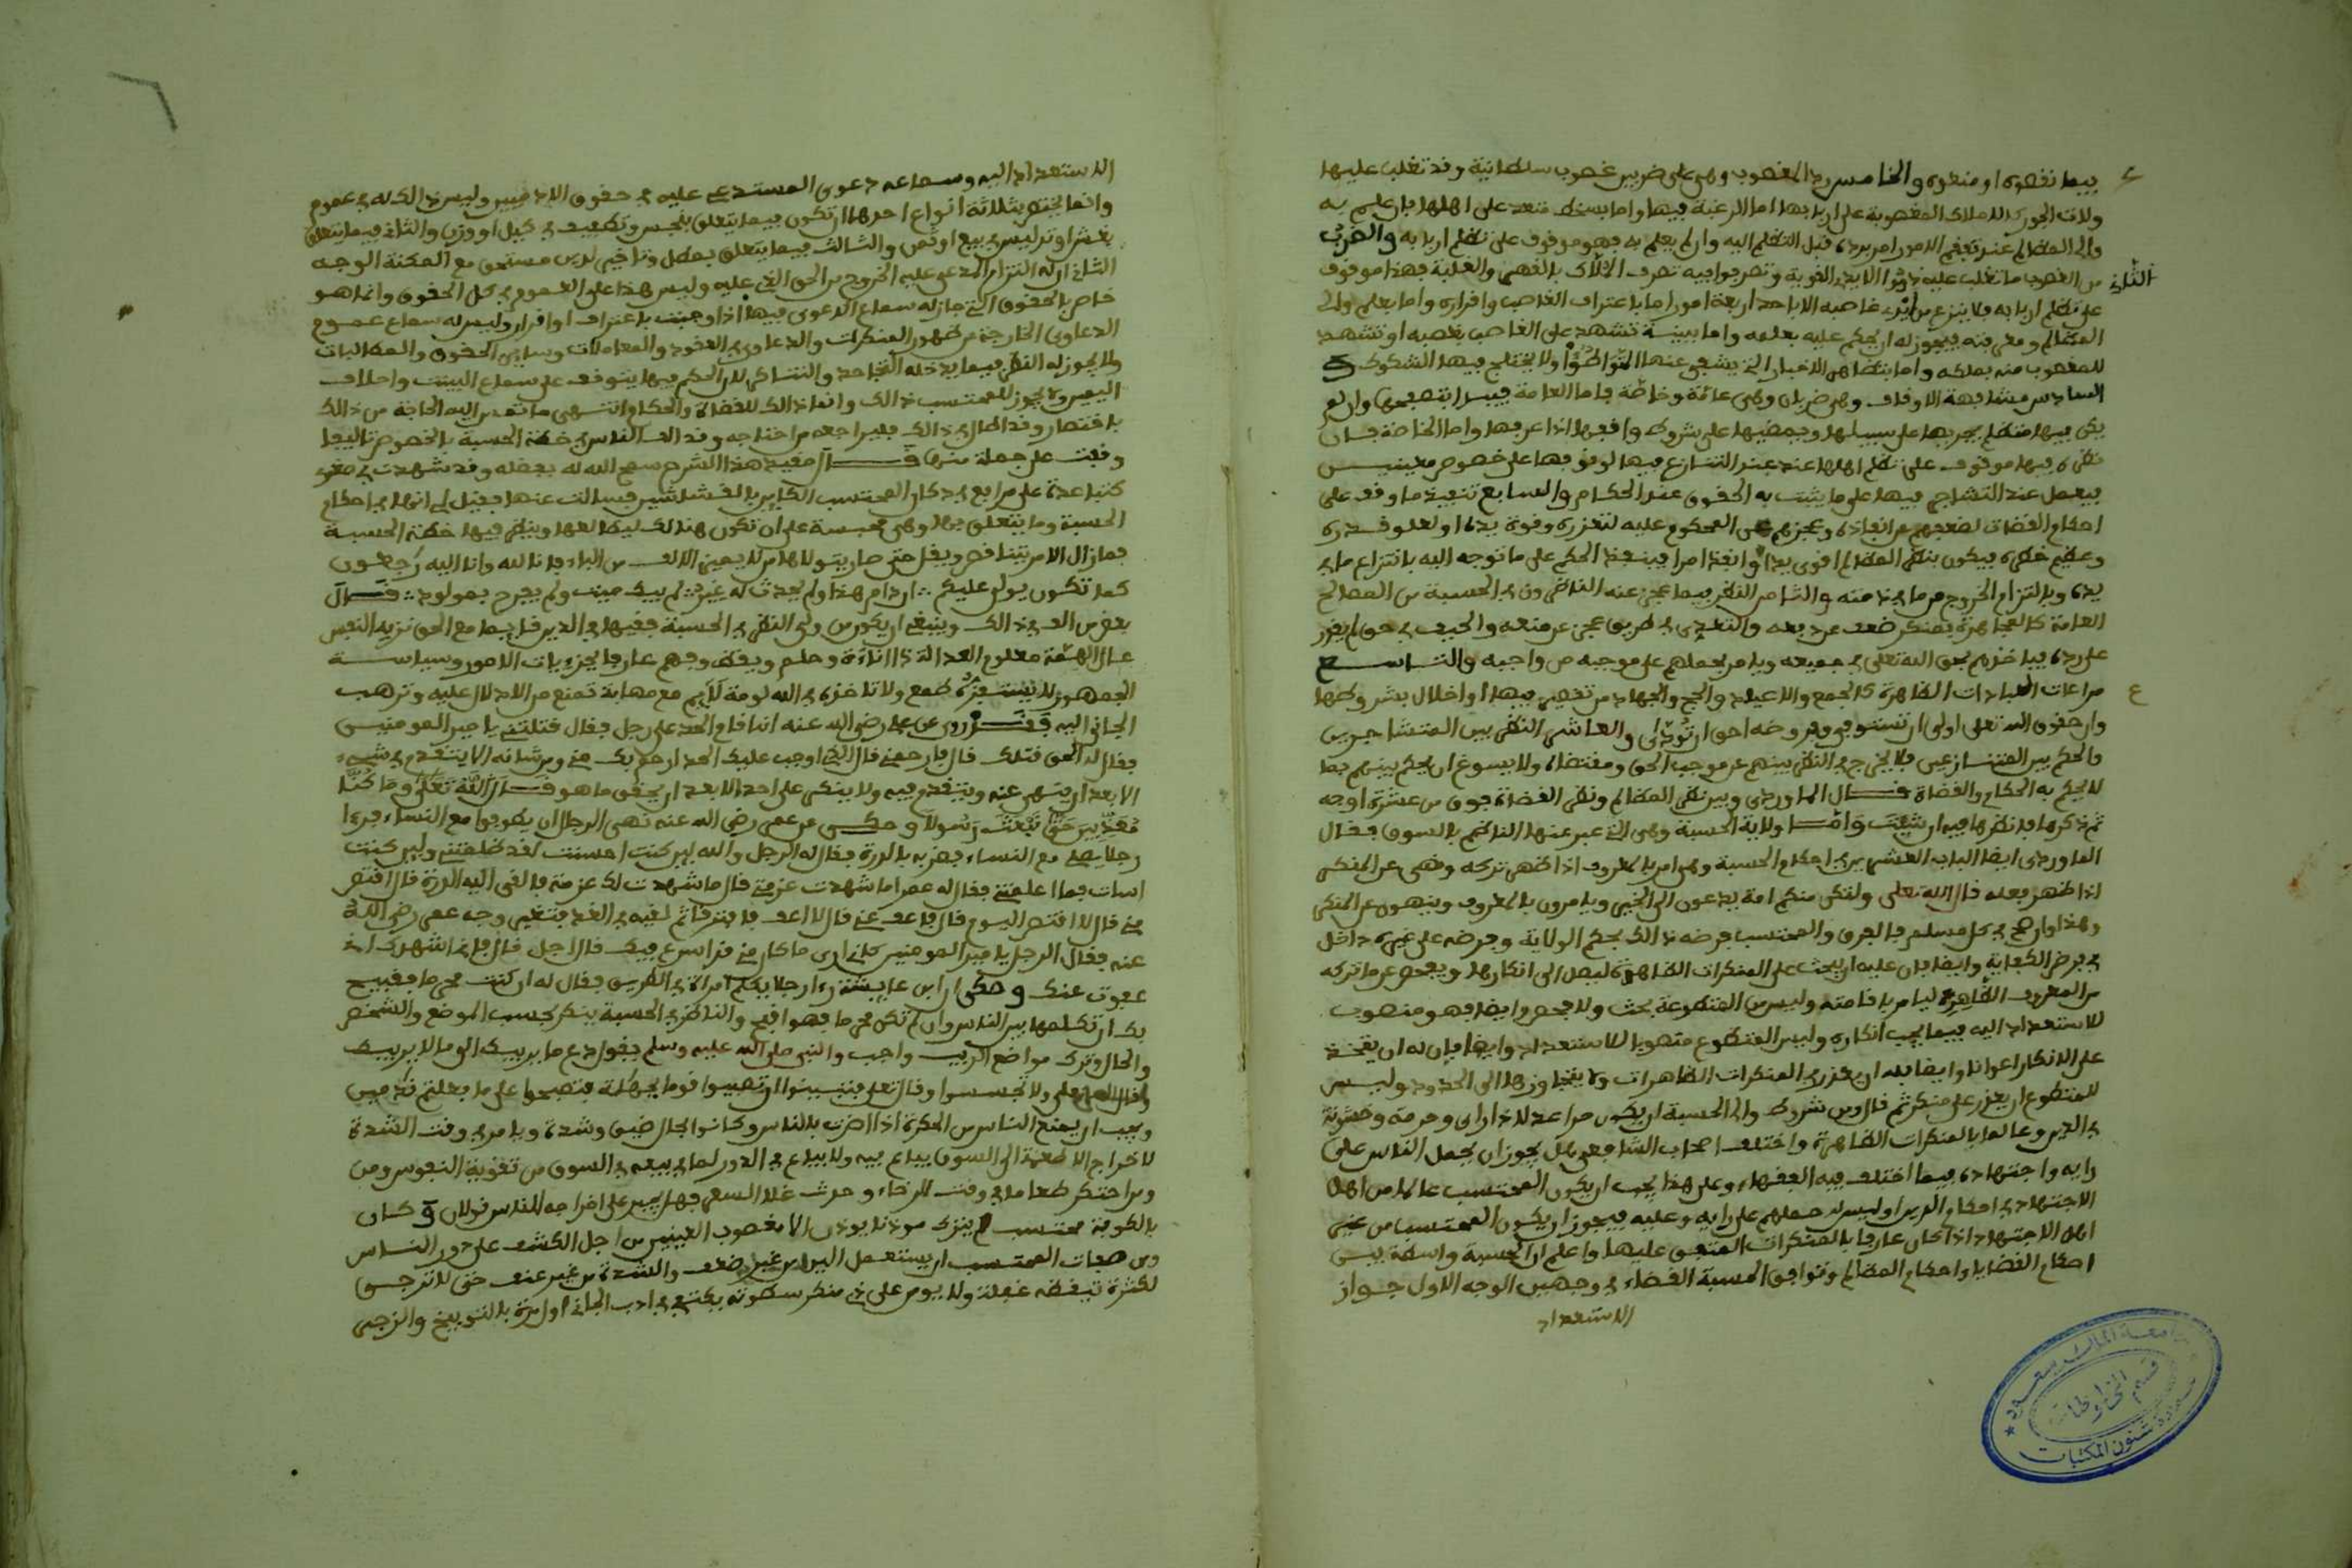 فيما نقصوه او منعوه والخامس رد الغصوب وهي على ضربين غصوب سلطانية وقد تغلب عليها
ولات الجور كالاملاك المغصوبة على اربابها اما الرغبة فيها واما بسخط متعد على اهلها فان علم به
والى المظالم عند تصفح الامور امر برده قبل التظلم اليه وان لم يعلم به فهو موقوف على تظلم اربابه والضرب
الثاني
من الغصوب ما تغلب عليه ذووا الايدي القوية وتصرفوا فيه تصرف الملاك بالقهر والغلبة فهذا موقوف
على تظلم اربابه ولا ينزع من ايدي غاصبه الا باحد اربعة امور اما باعتراف الغاصب واقراره واما بعلم والى
المظالم ومعرفته فيجوز له ان يحكم عليه بعلمه واما ببينة تشهد على الغاصب بغصبه او تشهد
للمغصوب منه بملكه واما بتظاهر الاخبار التي ينتفي عنها التواطؤ ولا يختلج فيها الشكوك و
السادس مشارفة الاوقاف وهي ضربان وهي عامة وخاصة فاما العامة فيبدا بتصفحها وان لم
يكن فيها متظلم يجريها على سبيلها ويمضيها على شروط واقفها اذا عرفها واما الخاصة فان
نظره فيها موقوف على تظلم اهلها عند التنازع فيها لوقوفها على خصوم معينين
فيعمل عند التشاجر فيها على ما يثبت به الحقوق عند الحكام والسابع تنفيذ ما وقف على
احكام القضات لضعفهم عن انفاذه وعجزهم عن المحكوم عليه لتعززه وقوة يده او لعلو قدره
وعظيم خطره فيكون ناظر المظالم اقوى يدا وانفذ امرا فينفذ الحكم على ما توجه اليه بانتزاع ما في
يده وبالتزام الخروج مما في ذمته والثامن النظر فيما عجز عنه الناظرون في الحسبة من المصالح
العامة كالمجاهرة بمنكر ضعف عن دفعه والتعدي في طريق عجز عن منعه والحيف في حق لم يقدر
على رده فياخذهم بحق الله تعلى في جميعه ويامر بحملهم على موجبه من واجبه والتاسع
مراعات العبادات الظاهرة كالجمع والاعياد والحج والجهاد من تقصير فيها او اخلال بشروطها
وان حقوق الله تعلى اولى ان تستوفى وفروضه احق ان تؤدى والعاشر النظر بين المتشاجرين
والحكم بين المتنازعين فلا يخرج في النظر بينهم عن موجب الحق ومقتضاه ولا يسوغ ان يحكم بينهم بما
لا يحكم به الحكام والقضاة قال الماوردي وبين نظر المظالم ونظر القضاة فروق من عشرة اوجه
ثم ذكرها فانظرها فيه ان شئت واما ولاية الحسبة وهي التي عبر عنها الناظم بالسوق فقال
الماوردي ايضا الباب العشرين في احكام الحسبة وهي امر بالمعروف اذا ظهر تركه ونهي عن المنكر
اذا ظهر فعله قال الله تعلى ولتكن منكم امة يدعون الى الخير ويامرون بالمعروف وينهون عن المنكر
وهذا وان صح في كل مسلم فالفرق والمحتسب فرضه ذالك بحكم الولاية وفرضه على غيره داخل
في فرض الكفاية وايضا فان عليه ان يبحث على المنكرات الظاهرة ليصل الى انكارها ويفحص عن ما تركه
من المعروف الظاهر ليامر باقامته وليس من المتطوعة بحث ولا فحص وايضا فهو منصوب
للاستعداد اليه فيما يجب انكاره وليس المتطوع منصوبا للاستعداد وايضا فان له ان يتخذ
على الانكار اعوانا وايضا فله ان يعزر في المنكرات الظاهرات ولا يتجاوزها الى الحدود وليس
للمتطوع ان يعزر على منكر ثم قال ومن شروط والى الحسبة ان يكون حرا عدلا ذا راى وحرمة وخشونة
في الدين وعالما بالمنكرات الظاهرة واختلف اصحاب الشافعي هل يجوز ان يحمل الناس على
رايه واجتهاده فيما اختلف فيه الفقهاء وعلى هذا يجب ان يكون المحتسب عالما من اهل
الاجتهاد في احكام الدين اوليس له حملهم على رايه وعليه فيجوز ان يكون المحتسب من غير
اهل الاجتهاد اذا كان عارفا بالمنكرات المتفق عليها واعلم ان الحسبة واسطة بين
احكام القضايا واحكام المظالم وتوافق الحسبة القضاء في وجهين الوجه الاول جواز
الاستعداد
الاستعداد اليه وسماعه دعوى المستدعي عليه في حقوق الادميين وليس ذالك له في عموم
وانما يختص بثلاثة انواع احدها ان تكون فيما يتعلق ببخس وتطفيف في كيل او وزن والثاني فيما يتعلق
بغش او تدليس في بيع او ثمن والثالث فيما يتعلق بمطل وتاخير لدين مستحق مع المكنة الوجه
الثاني ان له التزام المدعى عليه الخروج من الحق الذي عليه وليس هذا على العموم في كل الحقوق وانما هو
خاص بالحقوق التي جاز له سماع الدعوى فيها اذا وجبت باعتراف او اقرار وليس له سماع عموم
الدعاوى الخارجة عن ظهور المنكرات والدعاوى في العقود والمعاملات وساير الحقوق والمطالبات
ولا يجوز له النظر فيما يدخله التجاحد والتناكر لان الحكم فيها يتوقف على سماع البينت واحلاف
اليمين ولا يجوز للمحتسب ذالك وانما ذالك للقضاة والحكام انتهى ما تدعو اليه الحاجة من ذالك
باقتصار وقد اطال في ذالك فليراجعه من احتاجه وقد الف الناس في خطة الحسبة بالخصوص تاليفا
وقفت على جملة منها قال مقيد هذا الشرح سمح الله له بفضله وقد شهدت في صغري
كتبا عدة على مرابع في دكان المحتسب الكاين بالقشاشين فسالت عنها فقيل لي انها في احكام
الحسبة وما يتعلق بها وهي محبسة على ان تكون هنالك ليطالعها وينظر فيها خطة الحسبة
فمازال الامر يتناقص ويقل حتى صار يتولاها من لا يميز الالف من الباء فانا لله وانا اليه رجعون
كما تكون يولى عليكم ان دام هذا ولم يحدث له غير لم يبك ميت ولم يفرح بمولود قال
بعض من الف في ذالك وينبغي ان يكون من ولي النظر في الحسبة فقيها في الدين قايما مع الحق نزيه النفس
عالى الهمة معلوم العدالة ذا اناءة وحلم ويقظ وفهم عارفا بجزءيات الامور وسياسة
الجمهور لا يستفزه طمع ولا تاخذه في الله لومة لايم مع مهابة تمنع من الادلال عليه وترهب
الجاني اليه فقد روي عن علي رضي الله عنه انه اقام الحد على رجل فقال قتلتني يا امير المومنين
فقال له الحق قتلك قال فارحمني قال الذي اوجب عليك الحد ارحم بك مني ومن شانه الا يتقدم في شيء
الا بعد ان ينهى عنه ويتقدم فيه ولا ينكر على احد الا بعد ان يحقق ما هو قال الله تعلى وما كنا
معذبين حتى نبعث رسولا وحكى عن عمر رضي الله عنه نهى الرجال ان يطوفوا مع النساء فرءا
رجلا يصلي مع النساء فضربه بالدرة فقال له الرجل والله لين كنت احسنت لقد ظلمتني ولين كنت
اسات فما اعلمتني فقال له عمر اما شهدت عزمتي قال ما شهدت لك عزمة فالقى اليه الدرة قال اقتص
مني قال لا اقتص اليوم قال فاعف عني قال لا اعف فافترقا ثم لقيه في الغد فتغير وجه عمر رضي الله
عنه فقال الرجل يا امير المومنين كاني ارى ما كان مني قد اسرع فيك قال اجل قال فاني اشهدك اني
عفوت عنك وحكى ان ابن عايشة رءا رجلا يكلم امراة في الطريق فقال له ان كنت محرما فقبيح
بك ان تكلمها بين الناس وان لم تكن محرما فهو اقبح والناظر في الحسبة ينكر بحسب الموضع والشخص
والحال وترك مواضع الريب واجب والنبي صلى الله عليه وسلم يقول دع ما يريبك الى ما لا يريبك
وقال الله تعلى ولا تجسسوا وقال تعلى فتبينوا ان تصيبوا قوما بجهلة فتصبحوا على ما فعلتم ندمين
ويجب ان يمنع الناس من الحكرة اذا اضرت بالناس وكانوا بحال ضيق وشدة ويامر في وقت الشدة
لاخراج الاطعمة الى السوق يباع فيه ولا يباع في الدور لما في بيعه في السوق من تقوية النفوس ومن
ومن احتكر طعاما في وقت الرخاء وحدث غلا السعر فهل يجبر على اخراجه للناس قولان وكان
بالكوفة محتسب لم يترك موذنا يوذن الا معصوب العينين من اجل الكشف على دور الناس
ومن صفات المحتسب ان يستعمل اللين من غير ضعف والشدة من غير عنف حتى لا ترجى
لكثرة تيقظه غفلة ولا يومن على ذي منكر سطوته يكتفي في ادب الجاني اول مرة بالتوبيخ والزجر
جامعة الملك سعود
قسم المخطوطات
عمادة شئون المكتبات